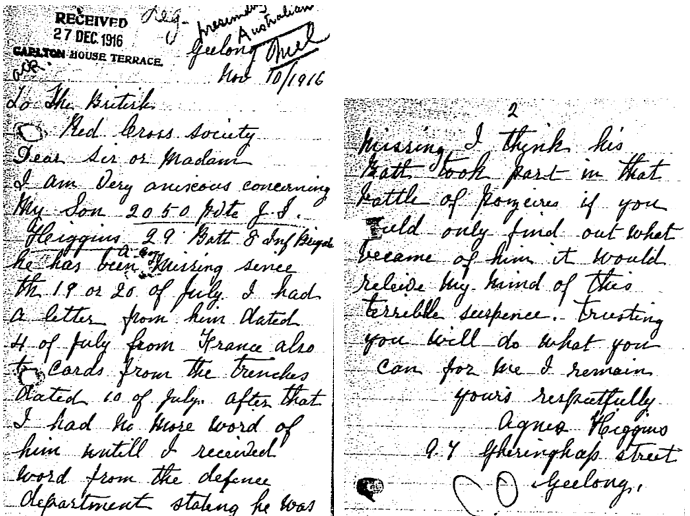 RECEIVED
27 DEC. 1916
CARLTON HOUSE TERRACE.
presumably
Australian
Geelong
Nov 10/1916
To The British
Red Cross Society
Dear Sir or Madam
I am Very anixous concerning
My Son 2050 pvte J. I.
Heiggins 29 Batt 8 Inf Brigade
he has been Missing sence
th 19 or 20 of July. I had
a letter from him dated
4 of July from France also
cards from the trenches
dated 10 of July. after that
I had no more word of
him untill I received
word from the defence
department stating he was
2
Missing, I think his
Batt took part in that
battle of pozeires if you
could only find out what
became of him it would
releive My Mind of this
terrible suspence. trusting
you will do what you
can for me I remain
yours respectfully
Agnes Heiggins
97 Gheringhap street
Geelong.